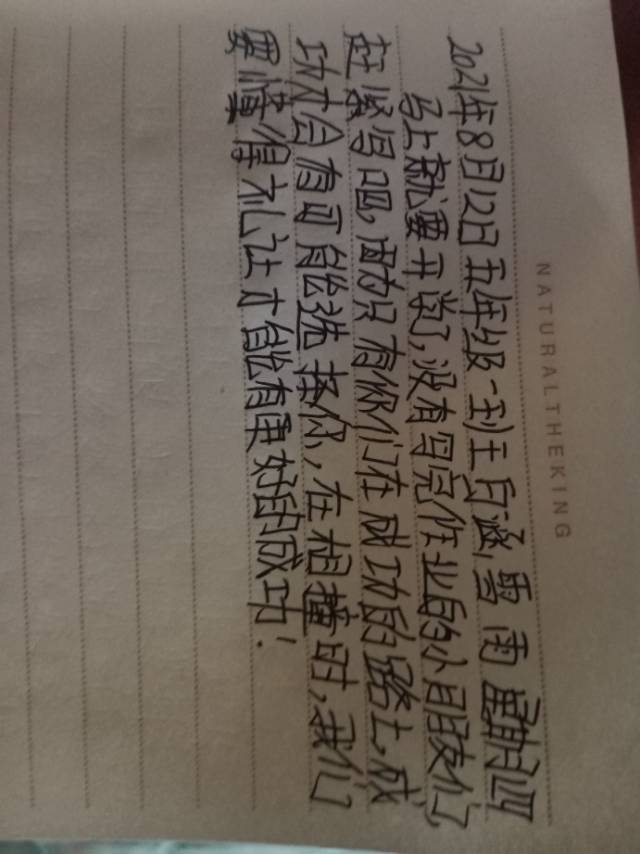 NATURALTHEKING
2021年8月12日五年级一到王启涵,雪雨 星期四
马上就要开学了,没有写完作业的小朋友们,
赶紧写吧,因为只有你们在成功的路上,成
功才会有可能选择你,在相撞时,我们
要懂得礼让才能有更好的成功!